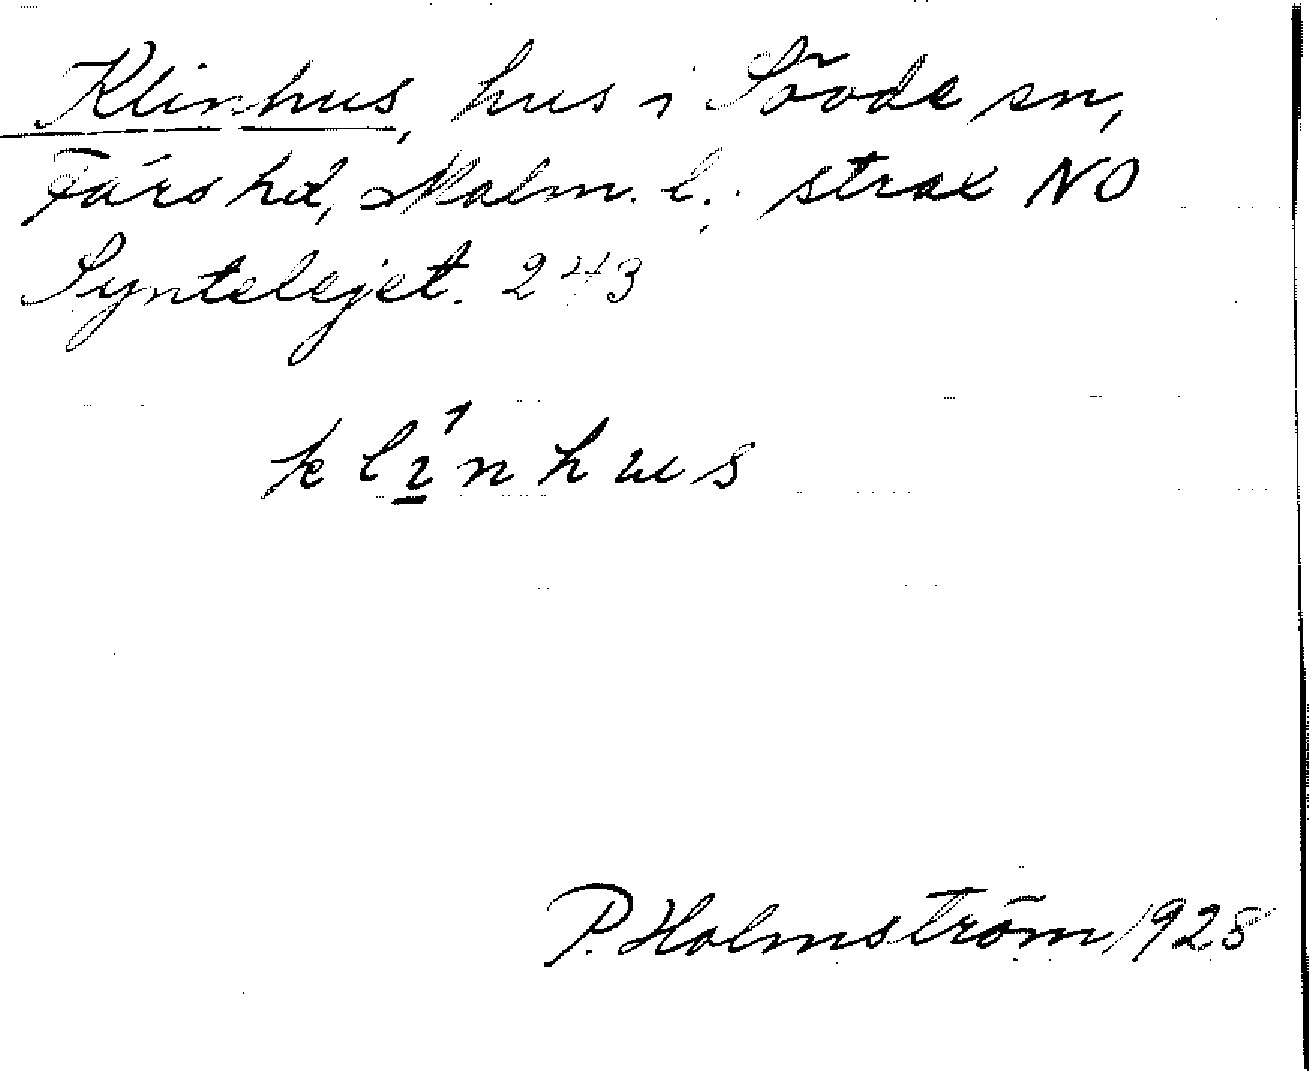 Klinhus, hus i Sövde sn,
Färs hd, Malm. l. strax NO
Syntelejet. 243
klinhus
P. Holmström 1928